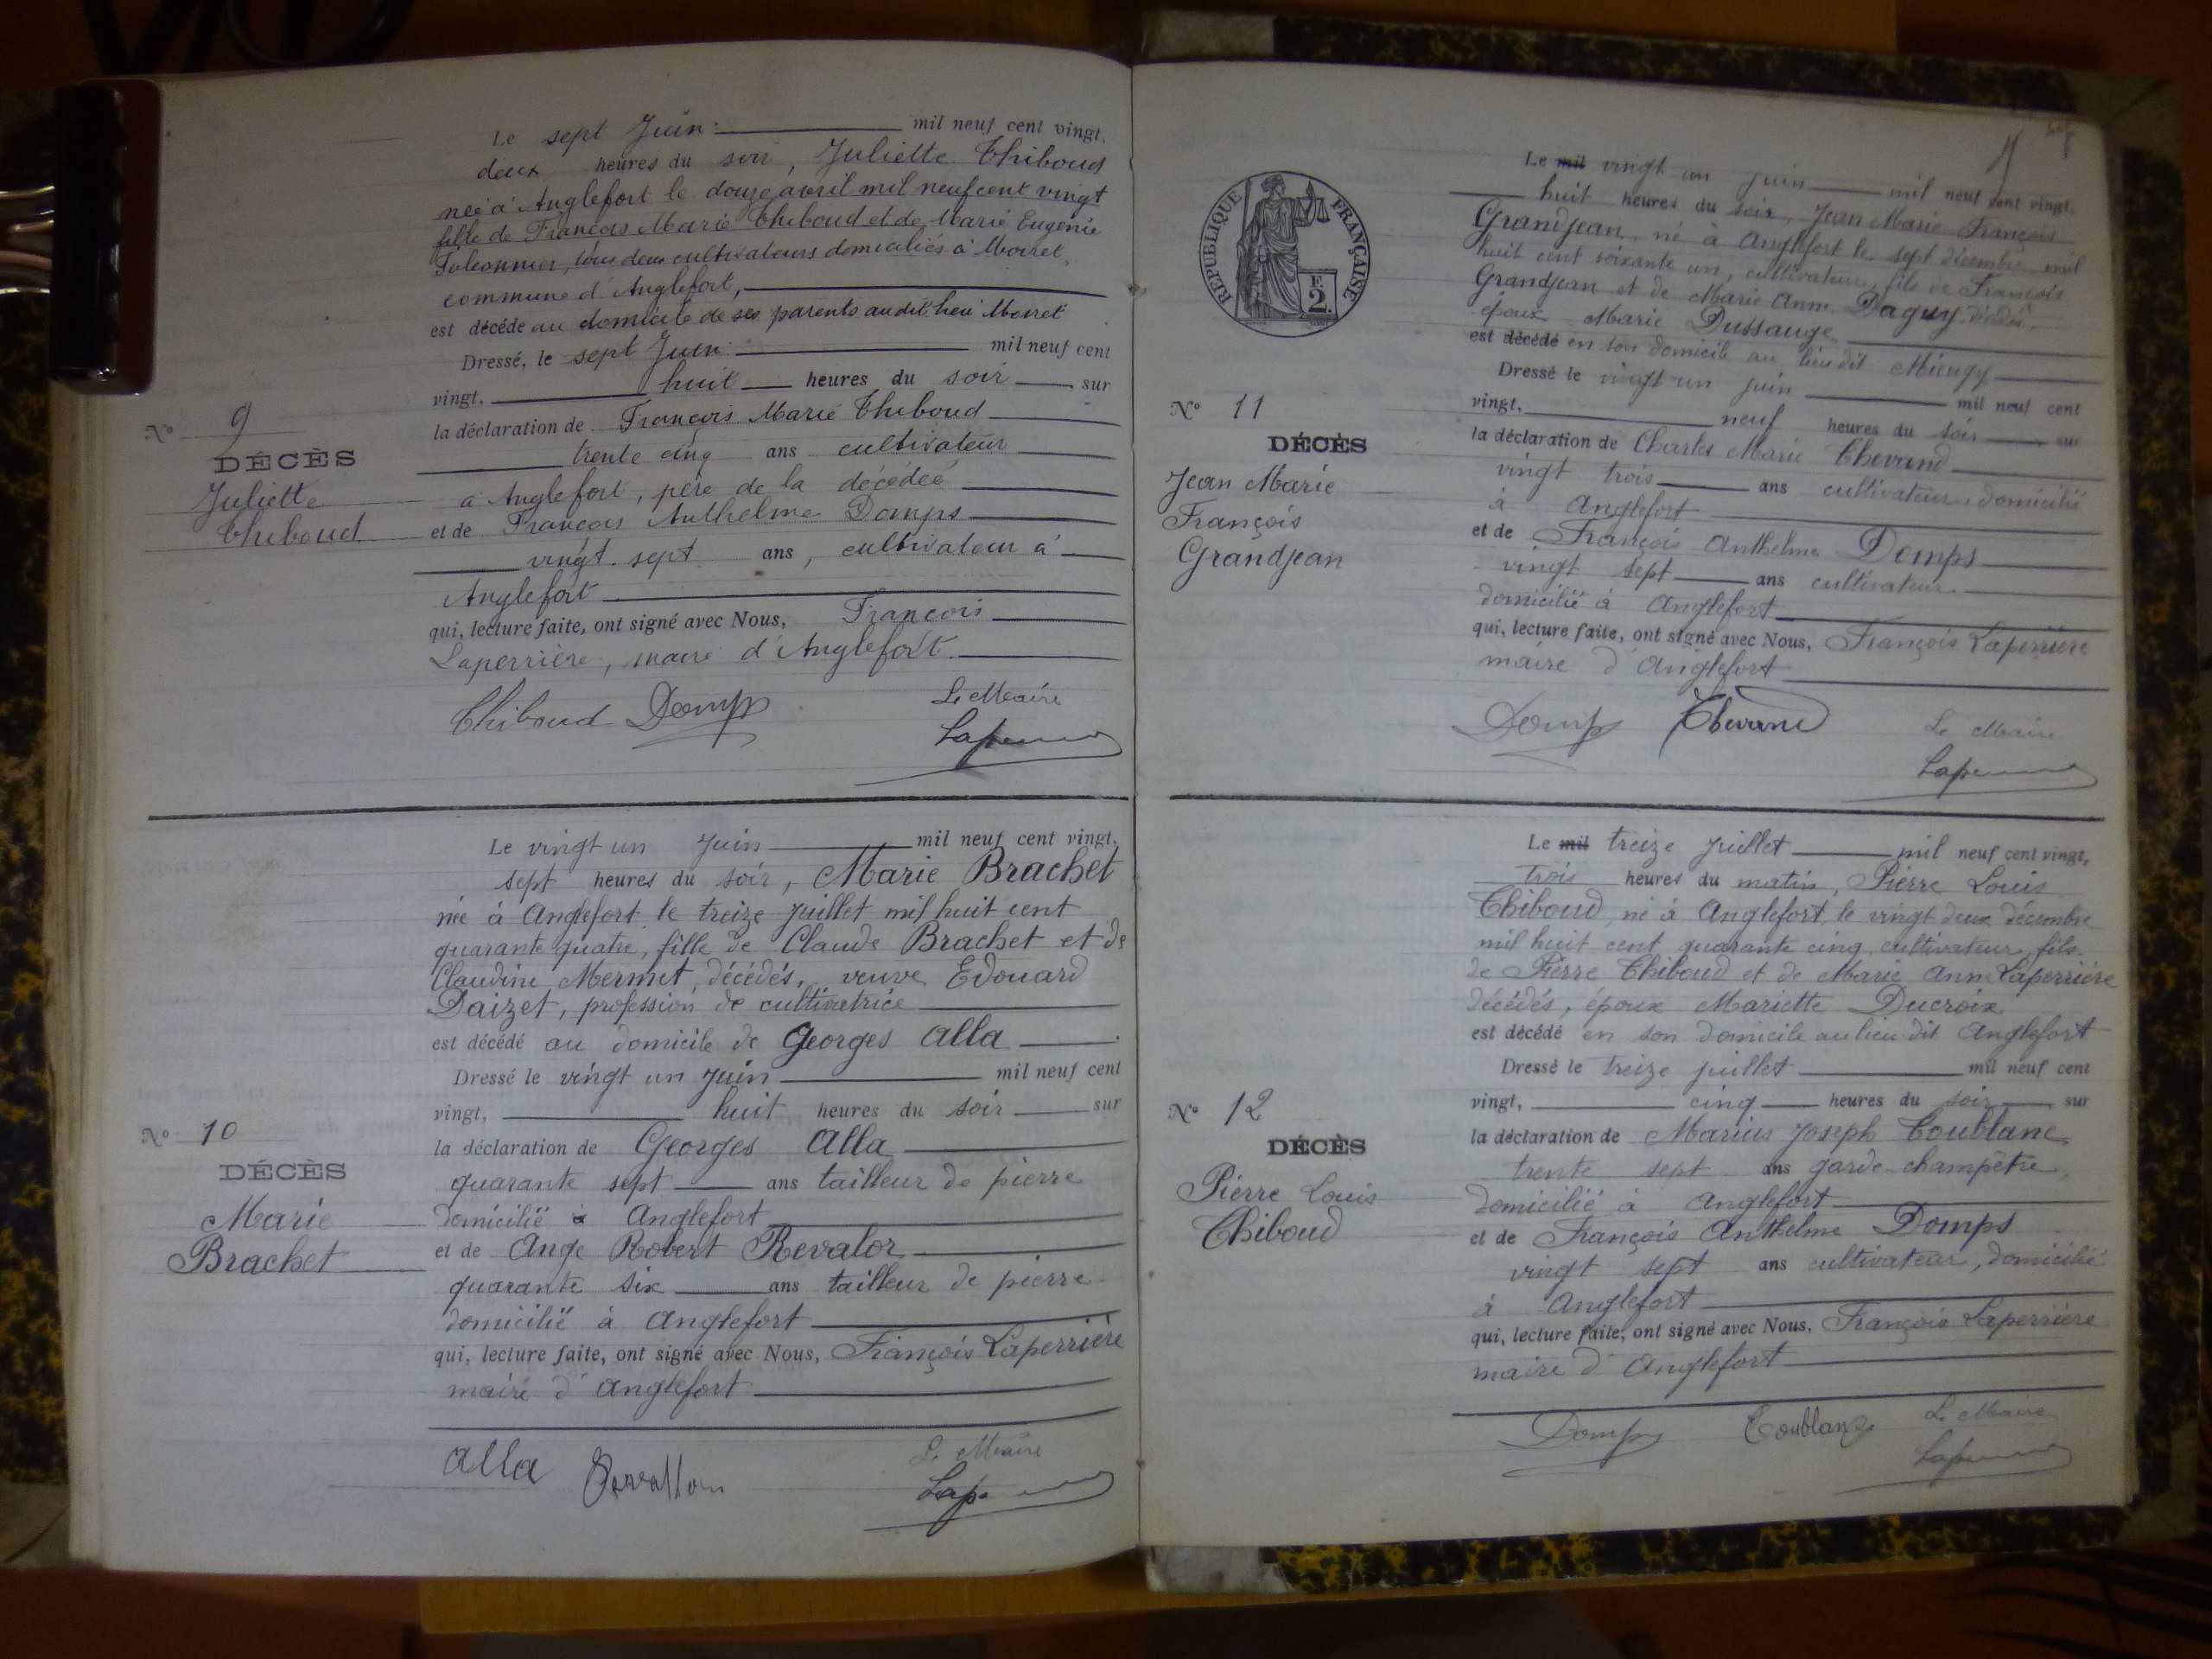 Le sept Juin mil neuf cent vingt,
deux heures du soir, Juliette Thiboud
née à Anglefort le douze avril mil neuf cent vingt
fille de François Marie Thiboud et de Marie Eugénie
Falconnier, tous deux cultivateurs domiciliés à Moiret,
commune d'Anglefort,
est décédé au domicile de ses parents audit lieu Moiret
Dressé, le sept Juin mil neuf cent
vingt, huit heures du soir sur
la déclaration de François Marie Thiboud
trente cinq ans cultivateur
à Anglefort, père de la décédée
et de François Anthelme Domps
vingt sept ans, cultivateur à
Anglefort
qui, lecture faite, ont signé avec Nous, François
Laperrière, maire d'Anglefort.
Thiboud Domps Le Maire
N° 9
DÉCÈS
Juliette
Thiboud
Le vingt un Juin mil neuf cent vingt,
sept heures du soir, Marie Brachet
née à Anglefort le treize juillet mil huit cent
quarante quatre, fille de Claude Brachet et de
Claudine Mermet, décédés, veuve Edouard
Daizet, profession de cultivatrice
est décédé au domicile de Georges Alla
Dressé le vingt un Juin mil neuf cent
vingt, huit heures du soir sur
la déclaration de Georges Alla
quarante sept ans tailleur de pierre
domicilié à Anglefort
et de Ange Robert Revalor
quarante six ans tailleur de pierre
domicilié à Anglefort
qui, lecture faite, ont signé avec Nous, François Laperrière
maire d'Anglefort
Alla Le Maire
N° 10
DÉCÈS
Marie
Brachet
RÉPUBLIQUE FRANÇAISE
F.
2.
Le mil vingt un juin mil neuf cent vingt,
huit heures du soir, Jean Marie François
Grandjean, né à Anglefort le sept décembre mil
huit cent soixante un, cultivateur, fils de François
Grandjean et de Marie Anne Daguy décédés,
époux Marie Dussauge
est décédé en son domicile au lieu dit Miengy
Dressé le vingt un juin mil neuf cent
vingt, neuf heures du soir sur
la déclaration de Charles Marie Thevand
vingt trois ans cultivateur, domicilié
à Anglefort
et de François Anthelme Domps
vingt sept ans cultivateur
domicilié à Anglefort
qui, lecture faite, ont signé avec Nous, François Laperrière
maire d'Anglefort
Domps Thevand Le Maire
N° 11
DÉCÈS
Jean Marie
François
Grandjean
Le mil treize juillet mil neuf cent vingt,
trois heures du matin, Pierre Louis
Thiboud, né à Anglefort, le vingt deux décembre
mil huit cent quarante cinq, cultivateur, fils
de Pierre Thiboud et de Marie Anne Laperrière
décédés, époux Mariette Ducroix
est décédé en son domicile au lieu dit Anglefort
Dressé le treize juillet mil neuf cent
vingt, cinq heures du soir sur
la déclaration de Marius Joseph Coublanc,
trente sept ans garde-champêtre,
domicilié à Anglefort
et de François Anthelme Domps
vingt sept ans cultivateur, domicilié
à Anglefort
qui, lecture faite, ont signé avec Nous, François Laperrière
maire d'Anglefort
Domps Coublanc Le Maire
N° 12
DÉCÈS
Pierre Louis
Thiboud